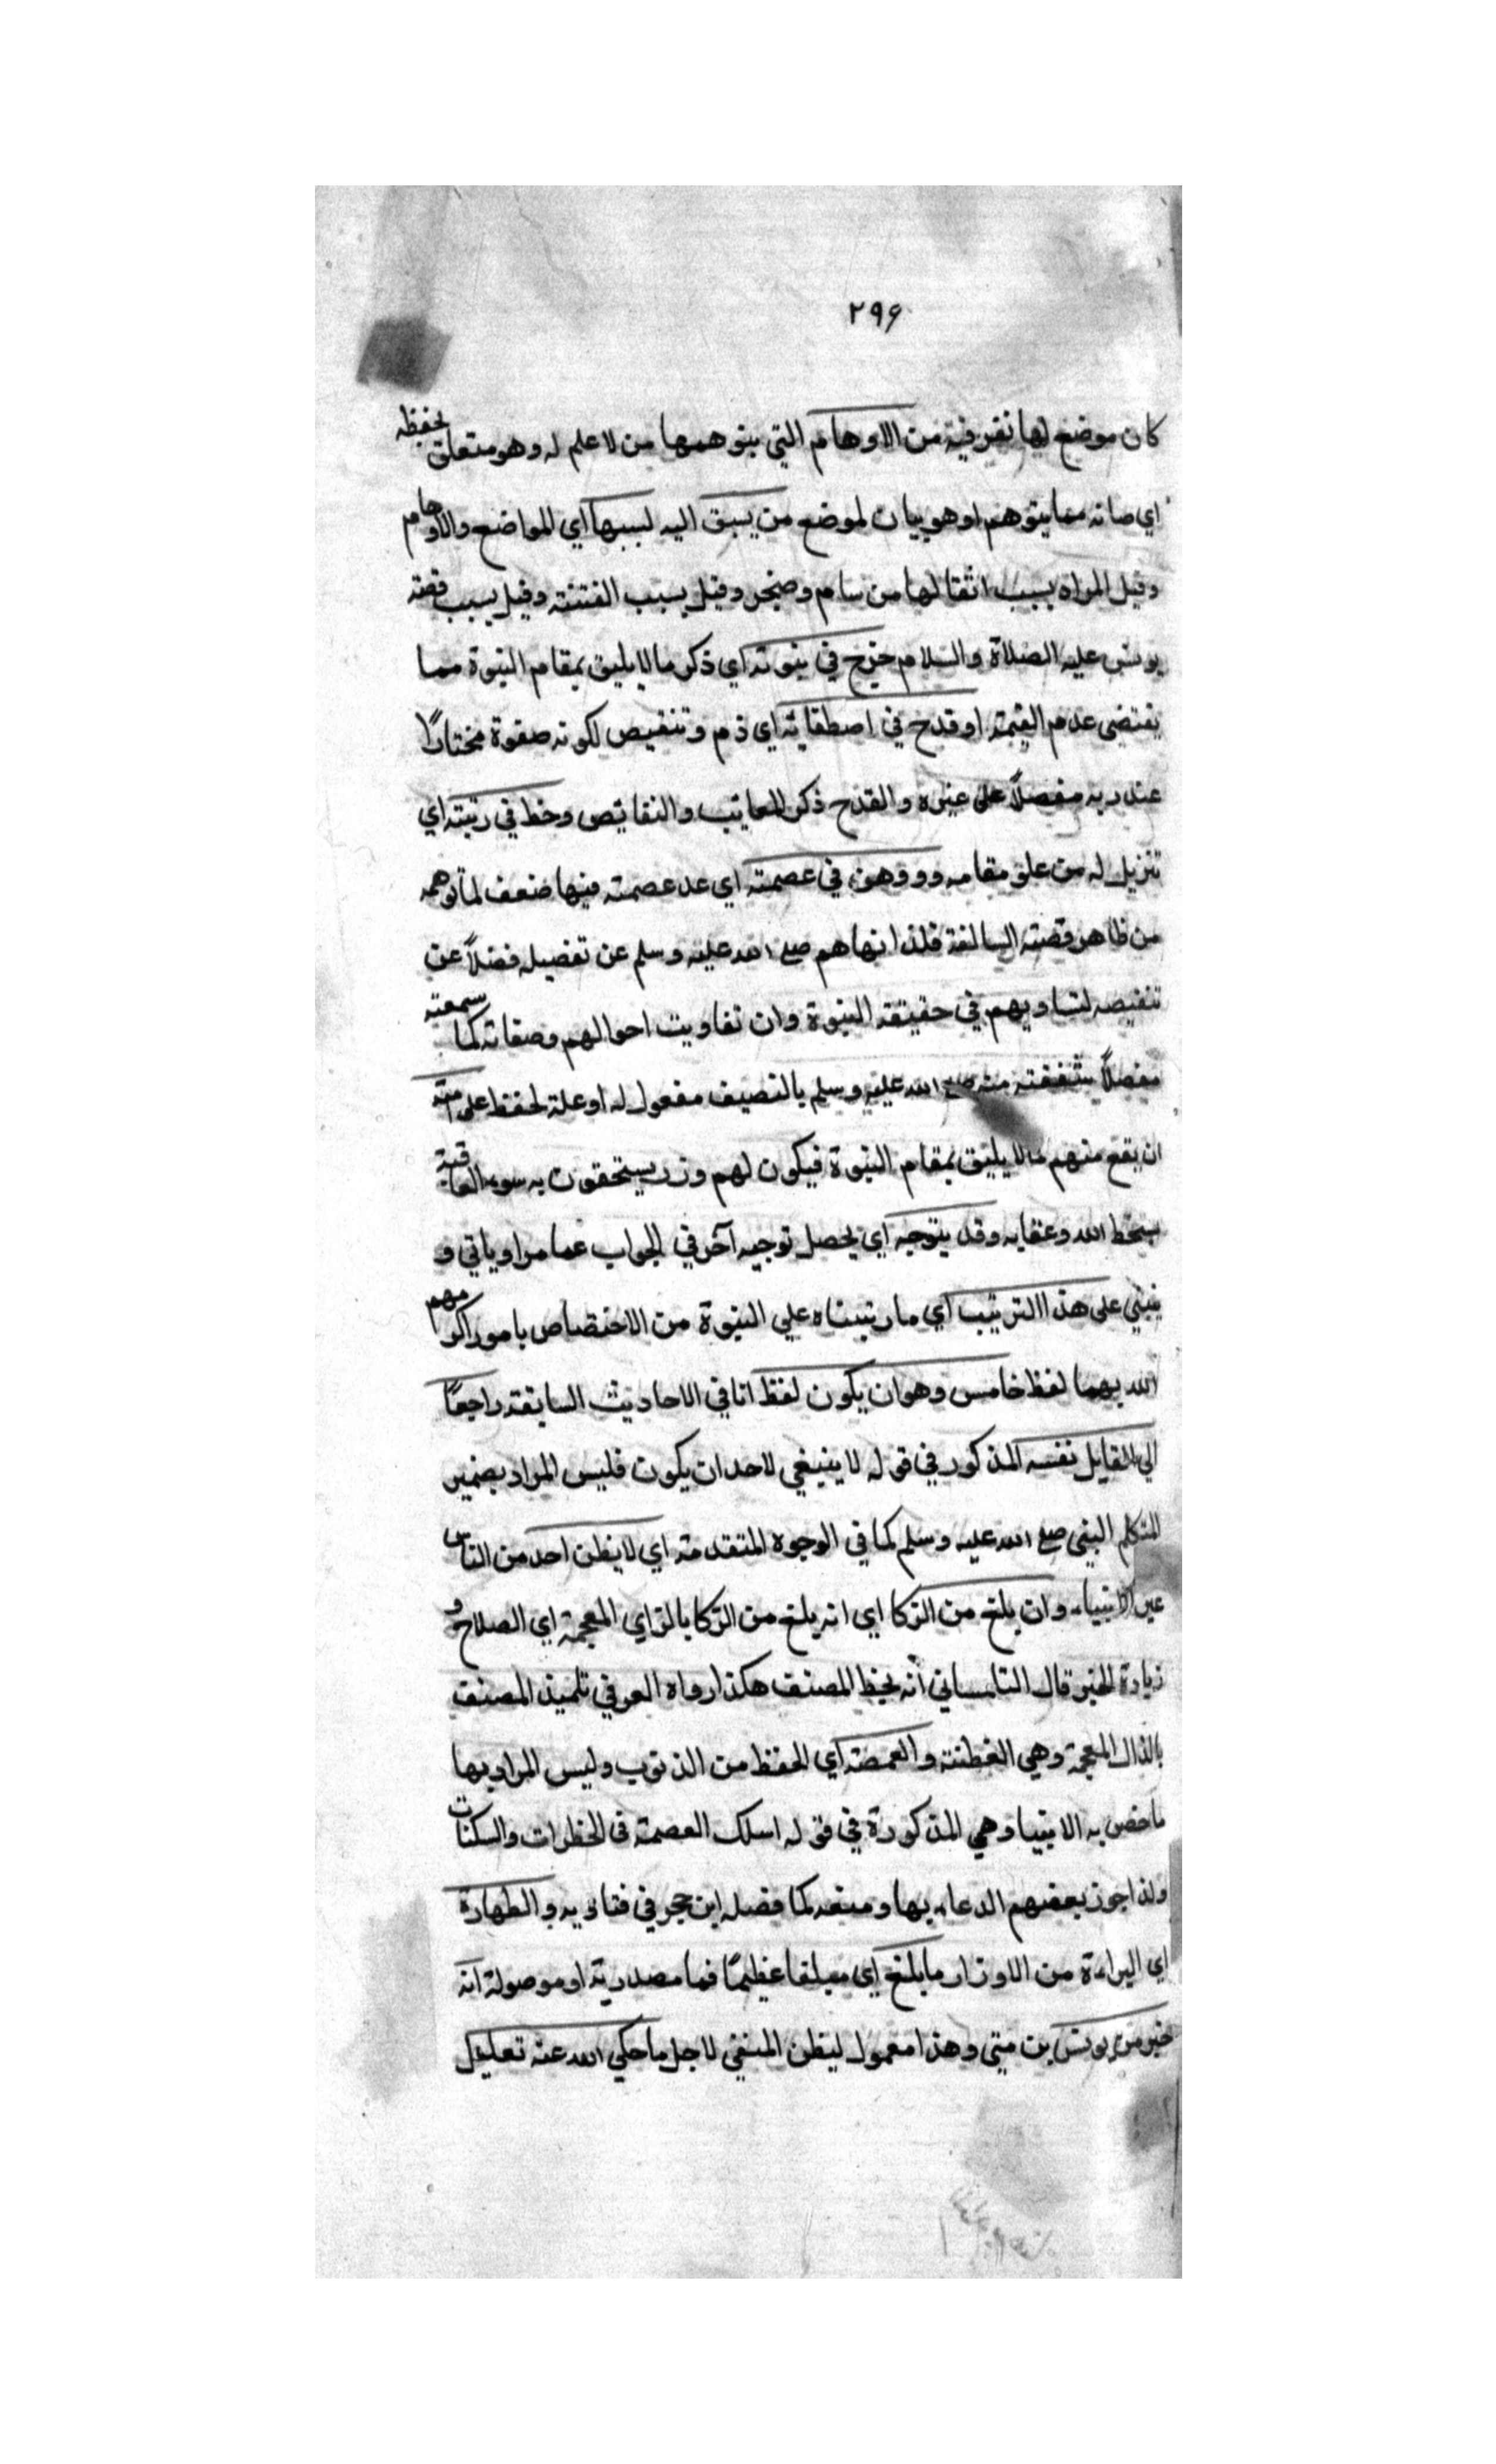 ٢٩٦
كان موضع لها نفر فيه من الاوهام التي يتوهمها من لا علم له وهو متعلق بحفظه
اي صانه مما يتوهم او هو بيان لموضع من يسبق اليه لسببها اي المواضع والاوهام
وقيل المراد بسبب اثقالها من سام وضجر وقيل بسبب الفتنة وقيل بسبب قصة
يونس عليه الصلاة والسلام جرح في نبوته اي ذكر ما لا يليق بمقام النبوة مما
يقتضي عدم القيمة او قدح في اصطفائه اي ذم وتنقيص لكونه صفوة مختارًا
عند ربه مفصلاً على غيره والقدح ذكر المعائب والنقائص وحط في رتبته اي
تنزيل له من علو مقامه ووهن في عصمته اي عد عصمته فيها ضعف لما توهمه
من ظاهر قصته السالفة فلذا نهاهم صلع الله عليه وسلم عن تفضيله فضلاً عن
تنقيصه لتساويهم في حقيقة النبوة وان تفاوتت احوالهم وصفاته كما سمعته
مفصلاً شفقته منه صلع الله عليه وسلم بالنصب مفعول له او علة لحفظ على امته
ان يقع منهم مالا يليق بمقام النبوة فيكون لهم وزر يستحقون به سوء العاقبة
بسخط الله وعقابه وقد يتوجه اي يحصل توجيه آخر في الجواب عما مر او ياتي و
ينبني على هذا الترتيب اي ما رتبناه علي النبوة من الاختصاص بامور اكرمهم
الله بهما لفظ خامس وهو ان يكون لفظ انا في الاحاديث السابقة راجعًا
الي القايل نفسه المذكور في قوله لا ينبغي لاحد ان يكون فليس المراد بضمير
المتكلم النبي صلع الله عليه وسلم كما في الوجوه المتقدمة اي لا يظن احد من الناس
غير الانبياء وان بلغ من الزكا اي انه بلغ من الزكا بالزاي المعجمة اي الصلاح و
زيادة الخير قال التلمساني أنه بخط المصنف هكذا رواه العرفي تلميذ المصنف
بالذال المعجمة وهي الفطنة والعصمة اي الحفظ من الذنوب وليس المراد بها
ما خص به الانبيا وهي المذكورة في قوله اسلك العصمة في الخطرات والسكنات
ولذا جوز بعضهم الدعاء بها ومنعه كما فصله ابن حجر في فتاويه والطهارة
اي البراءة من الاوزار ما بلغ اي مبلغا عظيمًا فما مصدرية او موصولة انه
خير من يونس بن متي وهذا معمول ليظن المنفي لاجل ما حكي الله عنه تعليل